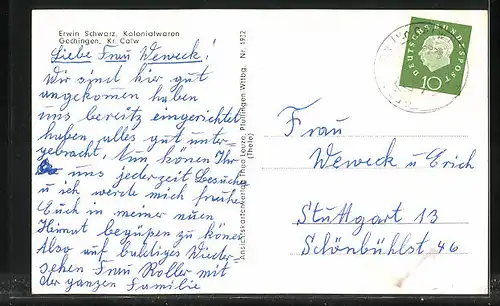 Erwin Schwarz, Kolonialwaren
Gechingen, Kr. Calw
Liebe Frau Weweck!
Wir sind hier gut
angekomen haben
uns bereitz eingerichtet
haben alles gut unter-
gebracht. Nun könen Ihr
uns jederzeit Besuchen
u ich werde mich freuhen
Euch in meiner neuen
Heimat begrüsen zu könen
Also auf baldiges Wieder-
sehen Frau Koller mit
der ganzen Familie
Ansichtskartenverlag Theo Lenze, Pfullingen Wttbg. Nr. 1932
(Thele)
DEUTSCHE BUNDESPOST
10
Frau
Weweck u Erich
Stuttgart 13
Schönbühlst 46